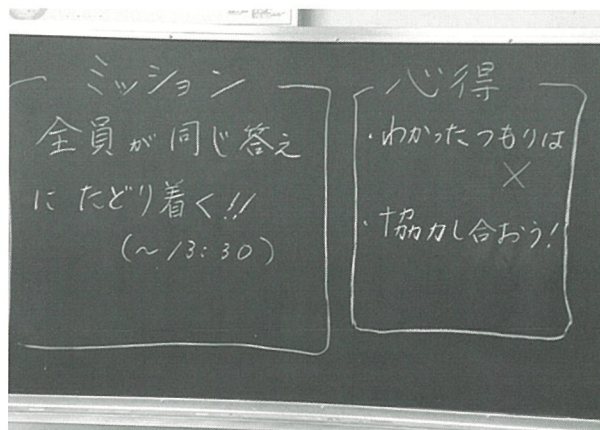 ミッション
全員が同じ答え
にたどり着く!!
(～13:30)
心得
・わかったつもりは
×
・協力し合おう!